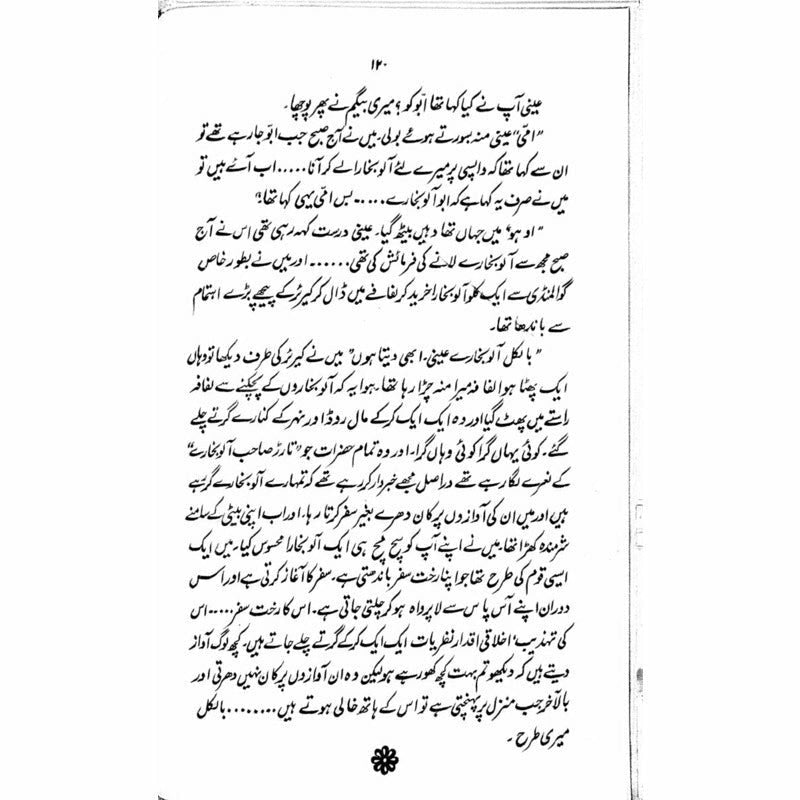 ۱۲۰
عینی آپ نے کیا کہا تھا ابّو کو ؟ میری بیگم نے پھر پوچھا۔
”امّی“ عینی منہ بسورتے ہوئے بولی۔ میں نے آج صبح جب ابّو جا رہے تھے تو
ان سے کہا تھا کہ واپسی پر میرے لئے آلو بخارا لے کر آنا ..... اب آئے ہیں تو
میں نے صرف یہ کہا ہے کہ ابو آلو بخارے ..... بس امّی یہی کہا تھا!“
” اوہو“ میں جہاں تھا وہیں بیٹھ گیا۔ عینی درست کہہ رہی تھی اس نے آج
صبح مجھ سے آلو بخارے لانے کی فرمائش کی تھی ...... اور میں نے بطور خاص
گوالمنڈی سے ایک کلو آلو بخارا خرید کر لفافے میں ڈال کر کیرئر کے پیچھے بڑے اہتمام
سے باندھا تھا۔
” بالکل آلو بخارے عینی۔ ابھی دیتا ہوں“ میں نے کیرئر کی طرف دیکھا تو وہاں
ایک پھٹا ہوا لفافہ میرا منہ چڑا رہا تھا۔ ہوا یہ کہ آلو بخاروں کے پچکنے سے لفافہ
راستے میں پھٹ گیا اور وہ ایک ایک کر کے مال روڈ اور نہر کے کنارے گرتے چلے
گئے۔ کوئی یہاں گرا کوئی وہاں گرا۔ اور وہ تمام حضرات جو ”تارڑ صاحب آلو بخارے“
کے نعرے لگا رہے تھے دراصل مجھے خبردار کر رہے تھے کہ تمہارے آلو بخارے گر رہے
ہیں اور میں ان کی آوازوں پر کان دھرے بغیر سفر کرتا رہا۔ اور اب اپنی بیٹی کے سامنے
شرمندہ کھڑا تھا۔ میں نے اپنے آپ کو سچ مچ ہی ایک آلو بخارا محسوس کیا۔ میں ایک
ایسی قوم کی طرح تھا جو اپنا رخت سفر باندھتی ہے۔ سفر کا آغاز کرتی ہے اور اس
دوران اپنے آس پاس سے لاپرواہ ہو کر چلتی جاتی ہے۔ اس کا رخت سفر ..... اس
کی تہذیب‘ اخلاقی اقدار نظریات ایک ایک کر کے گرتے چلے جاتے ہیں۔ کچھ لوگ آواز
دیتے ہیں کہ دیکھو تم بہت کچھ کھو رہے ہو لیکن وہ ان آوازوں پر کان نہیں دھرتی اور
بالآخر جب منزل پر پہنچتی ہے تو اس کے ہاتھ خالی ہوتے ہیں ........ بالکل
میری طرح ۔